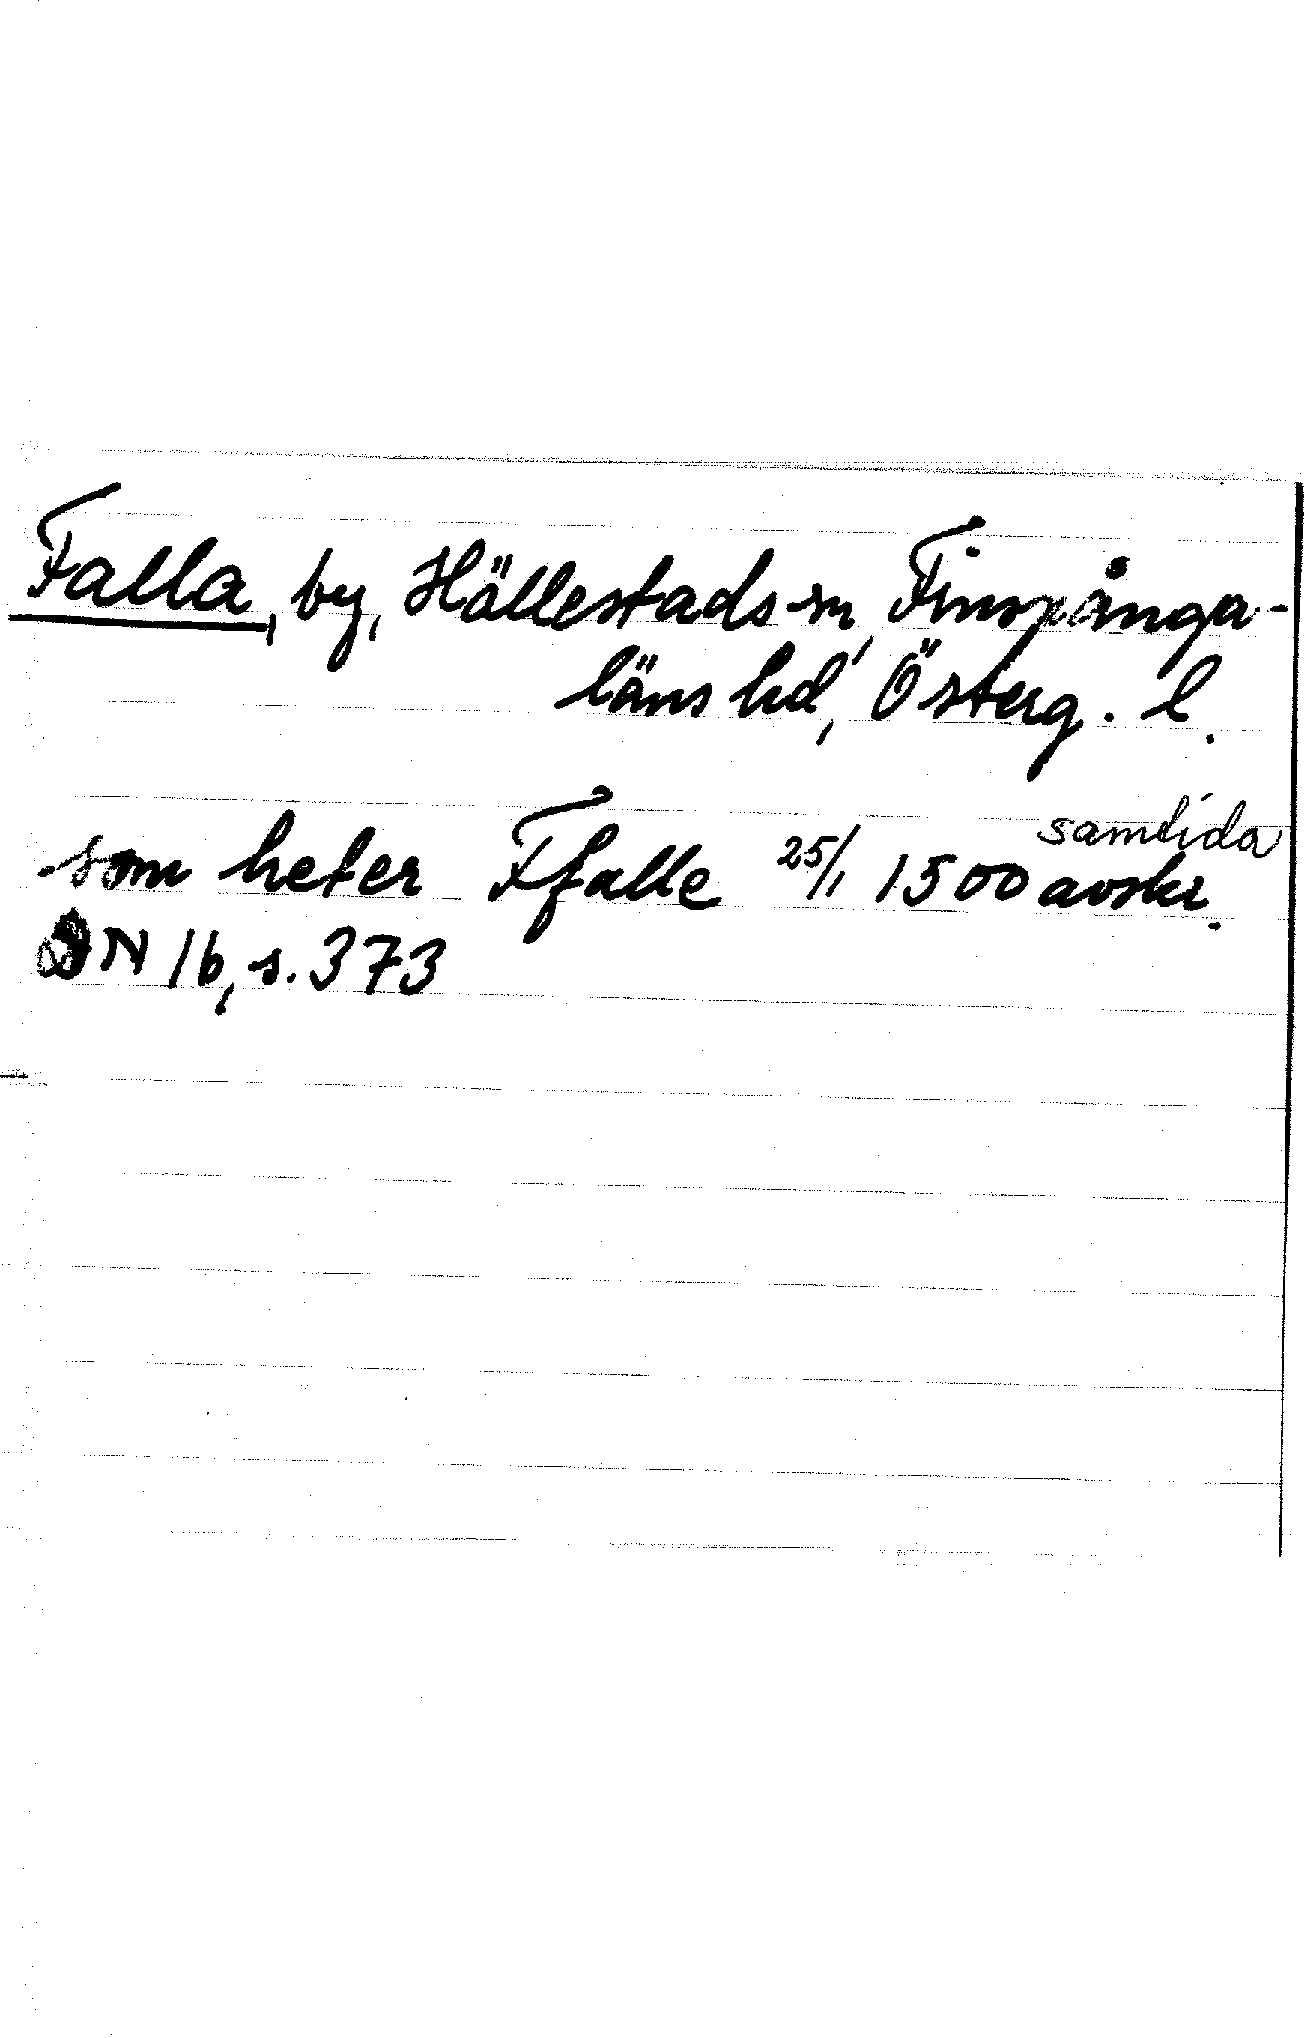 Falla, by, Hällestads sn, Finspånga-
läns hd, Österg. l.
samtida
som heter Ffalle 25/1 1500 avskr.
DN 16, s. 373